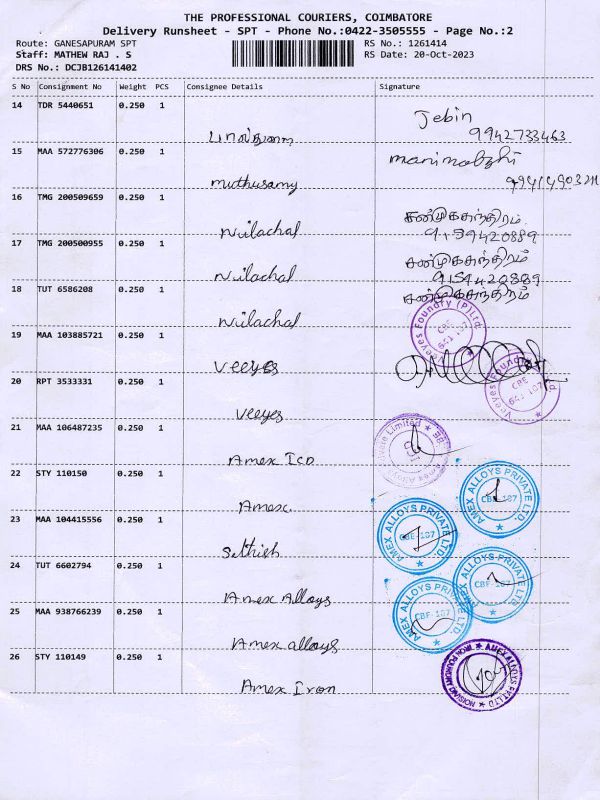 THE PROFESSIONAL COURIERS, COIMBATORE
Delivery Runsheet - SPT - Phone No.:0422-3505555 - Page No.:2
Route: GANESAPURAM SPT
RS No.: 1261414
Staff: MATHEW RAJ . S
RS Date: 20-Oct-2023
DRS No.: DCJB126141402
S No Consignment No Weight PCS Consignee Details Signature
14 TDR 5440651 0.250 1
Jebin
9942733463
15 MAA 572776306 0.250 1
manimozhi
muthusamy
16 TMG 200509659 0.250 1
சண்முகசுந்திரம்
Nilachal
9159420889
17 TMG 200500955 0.250 1
சண்முகசுந்திரம்
Nilachal
9159420889
18 TUT 6586208 0.250 1
சண்முகசுந்திரம்
Nilachal
Veeyes Foundry (P)Ltd.
CBE
641 107
19 MAA 103885721 0.250 1
Veeyes
Veeyes Foundry
CBE
641 107
20 RPT 3533331 0.250 1
Veeyes
21 MAA 106487235 0.250 1
Amex Alloys Private Limited
Amex Ico
22 STY 110150 0.250 1
AMEX ALLOYS PRIVATE LTD.
CBE-107
Amex
23 MAA 104415556 0.250 1
AMEX ALLOYS PRIVATE LTD.
CBE-107
Sathish
24 TUT 6602794 0.250 1
AMEX ALLOYS PRIVATE LTD.
CBE-107
Amex Alloys
25 MAA 938766239 0.250 1
AMEX ALLOYS PRIVATE LTD.
CBE-107
Amex alloys
26 STY 110149 0.250 1
AMEX ALLOYS PVT LTD
Amex Iron